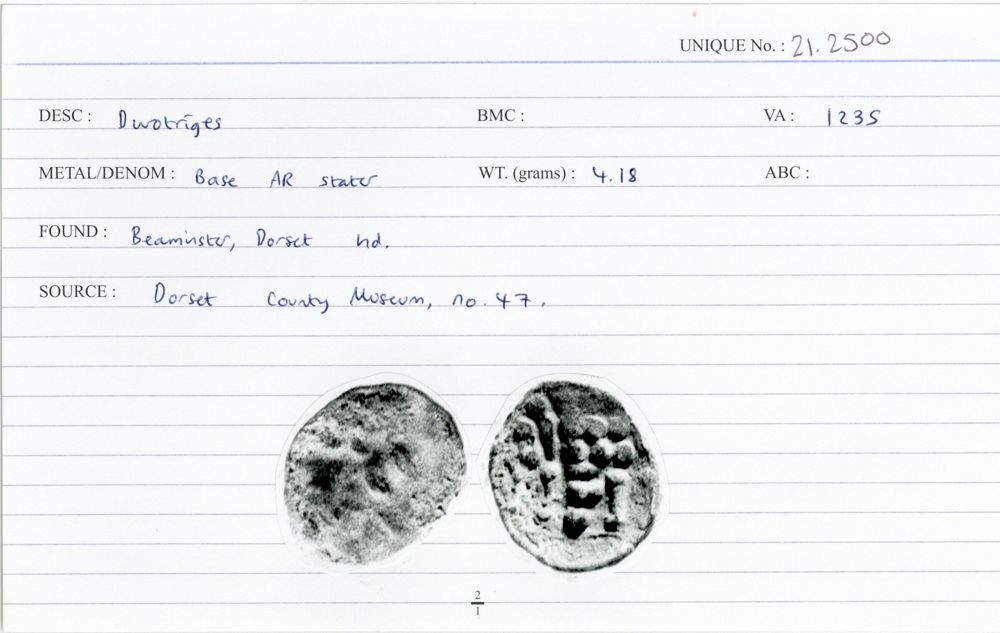 UNIQUE No. : 21.2500
DESC : Durotriges BMC : VA : 1235
METAL/DENOM : Base AR stater WT. (grams) : 4.18 ABC :
FOUND : Beaminster, Dorset nd.
SOURCE : Dorset County Museum, no. 47.
2
1